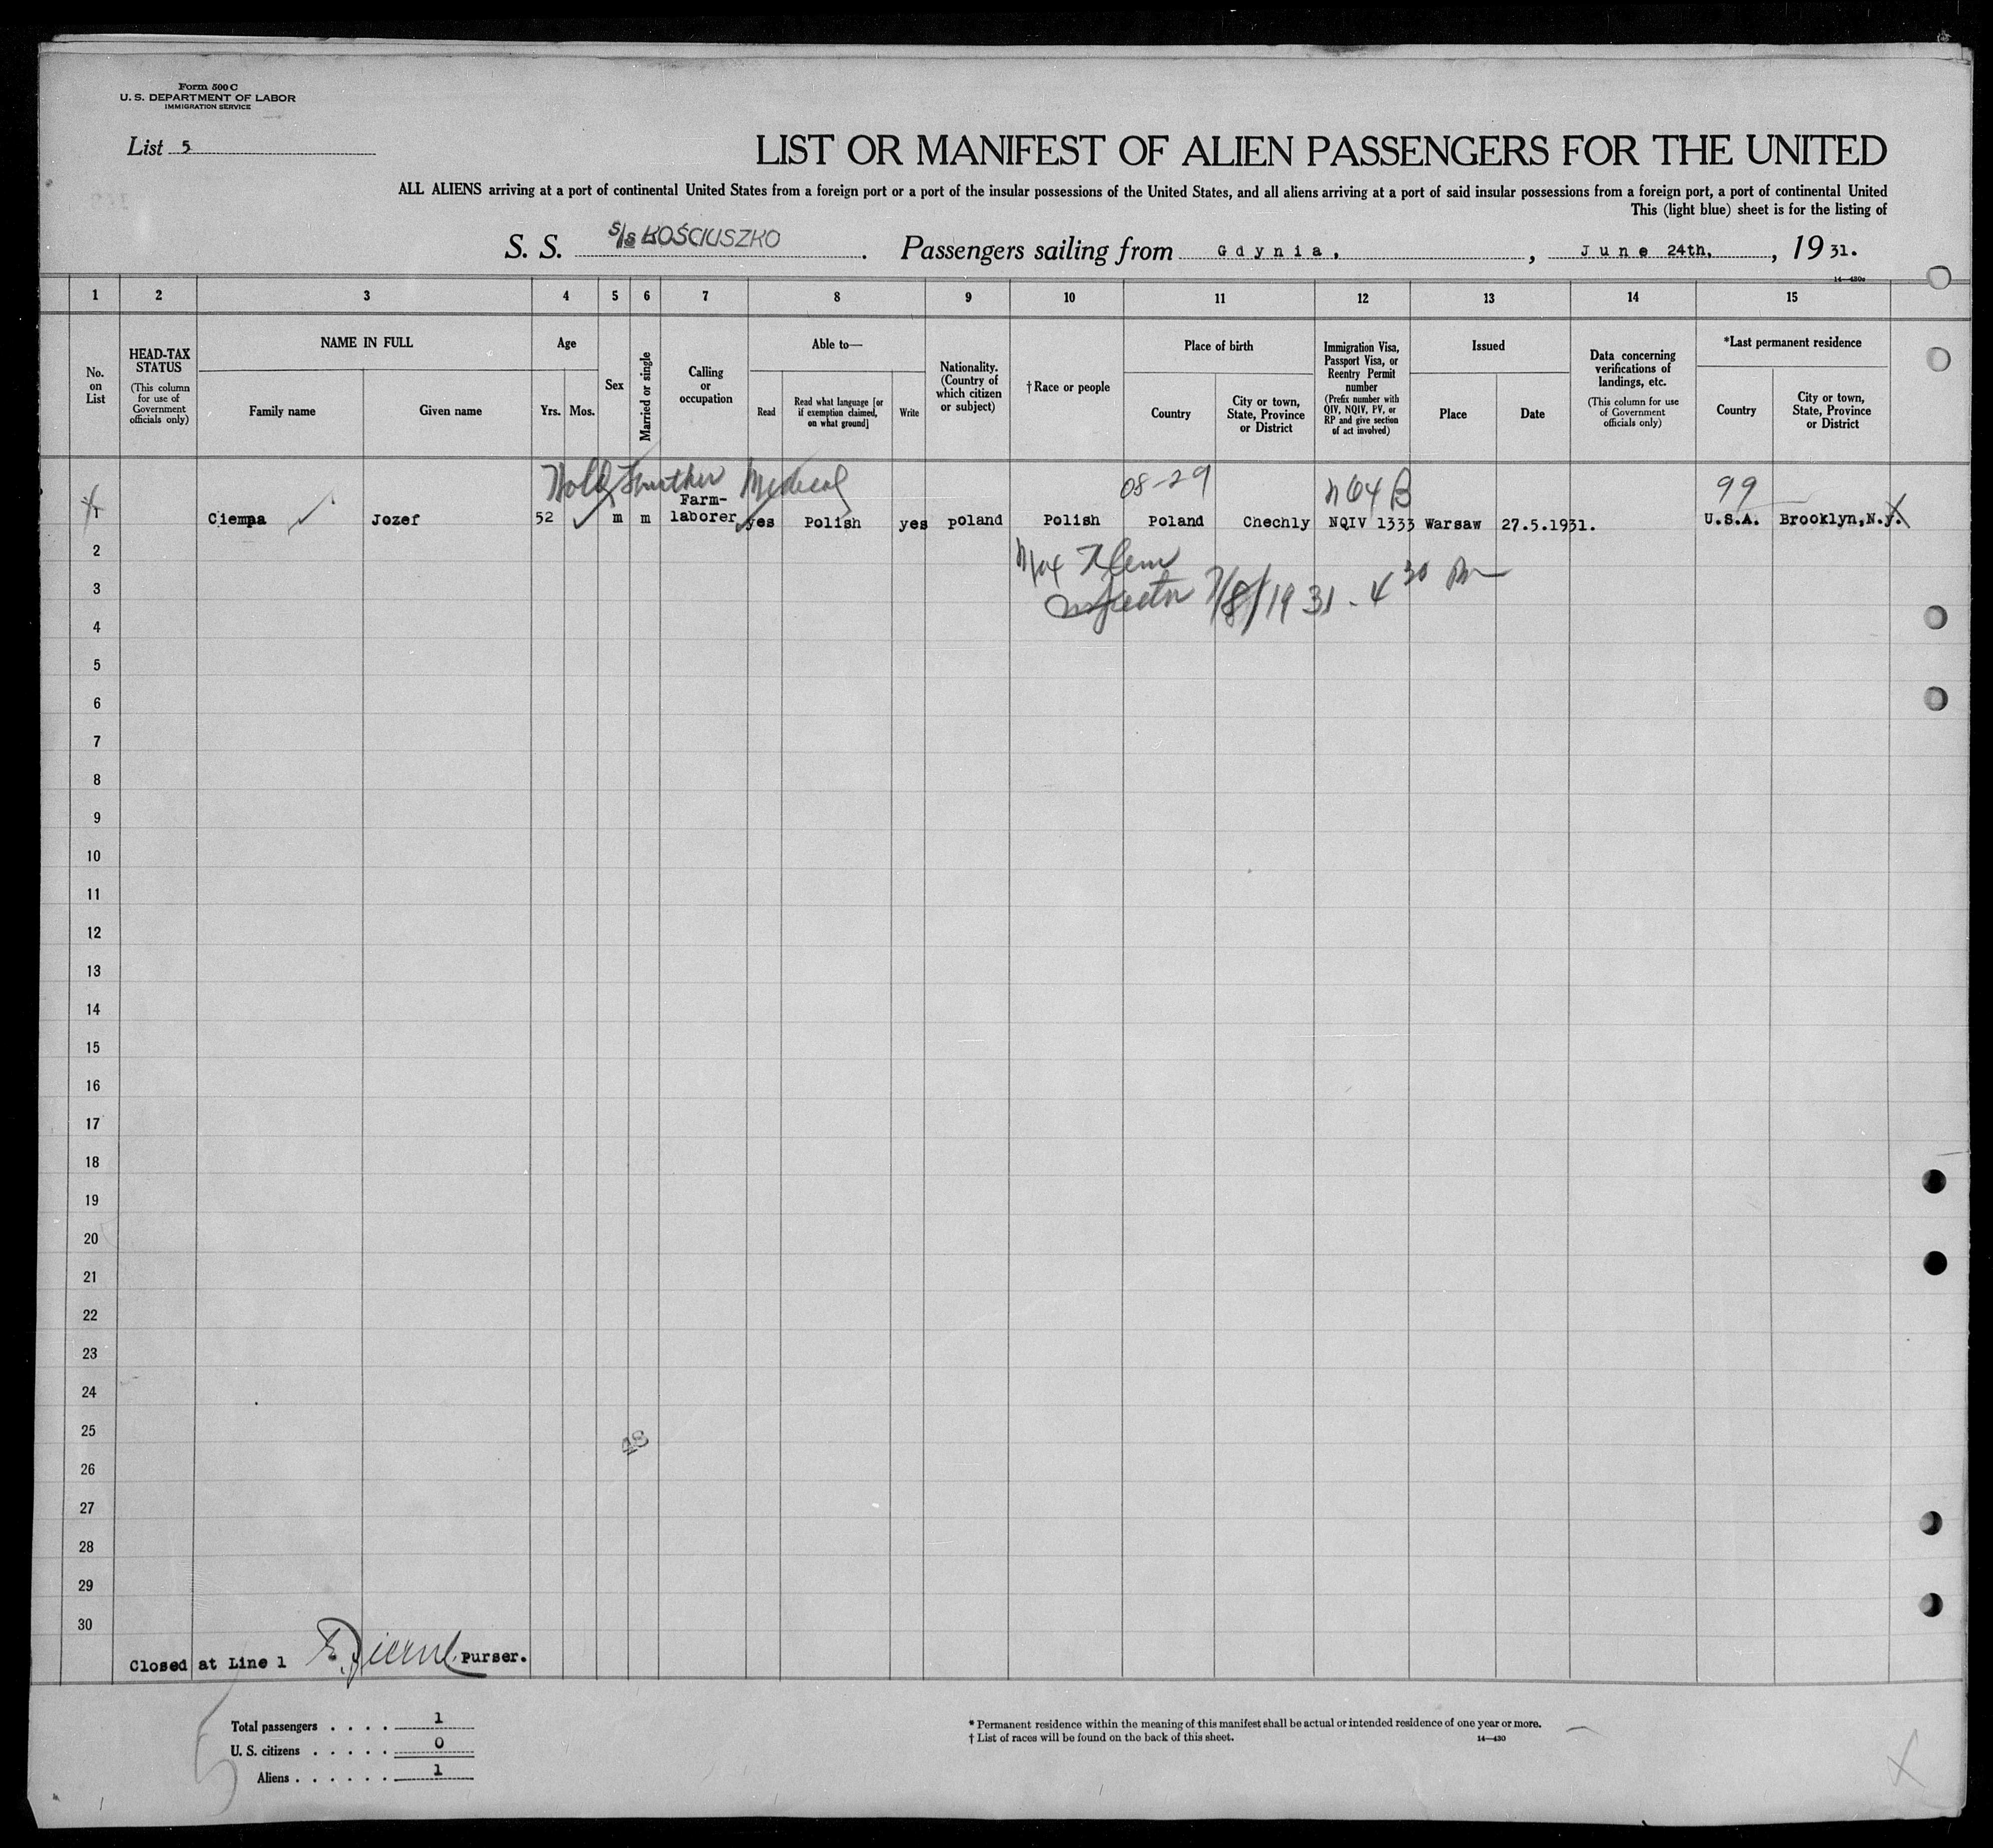 Form 500 C
U. S. DEPARTMENT OF LABOR
IMMIGRATION SERVICE
List 5
LIST OR MANIFEST OF ALIEN PASSENGERS FOR THE UNITED
ALL ALIENS arriving at a port of continental United States from a foreign port or a port of the insular possessions of the United States, and all aliens arriving at a port of said insular possessions from a foreign port, a port of continental United
This (light blue) sheet is for the listing of
S. S. S/S KOŚCIUSZKO. Passengers sailing from Gdynia, , June 24th, , 19 31.
14—430c
1 2 3 4 5 6 7 8 9 10 11 12 13 14 15
No. on List
HEAD-TAX STATUS
(This column for use of Government officials only)
NAME IN FULL
Family name
Given name
Age
Yrs. Mos.
Sex
Married or single
Calling or occupation
Able to—
Read
Read what language [or if exemption claimed, on what ground]
Write
Nationality. (Country of which citizen or subject)
†Race or people
Place of birth
Country
City or town, State, Province or District
Immigration Visa, Passport Visa, or Reentry Permit number
(Prefix number with QIV, NQIV, PV, or RP and give section of act involved)
Issued
Place
Date
Data concerning verifications of landings, etc.
(This column for use of Government officials only)
*Last permanent residence
Country
City or town, State, Province or District
Hold Further Medical 08-29 n 64 B 99
1 Ciempa Jozef 52 m m Farm-laborer yes Polish yes poland Polish Poland Chechly NQIV 1333 Warsaw 27.5.1931. U.S.A. Brooklyn,N.y.
2
Inspector 7/8/1931 - 4 30 Pm
3
4
5
6
7
8
9
10
11
12
13
14
15
16
17
18
19
20
21
22
23
24
25
48
26
27
28
29
30
Closed at Line 1 Purser.
Total passengers . . . . 1
U. S. citizens . . . . . 0
Aliens . . . . . . 1
* Permanent residence within the meaning of this manifest shall be actual or intended residence of one year or more.
† List of races will be found on the back of this sheet.
14—430
5